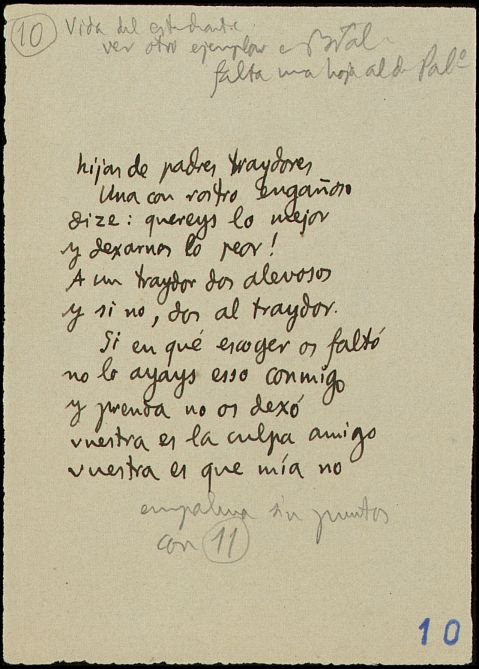 10 Vida del estudiante
ver otro ejemplar e
falta una hoja al de Palº
hijas de padres traydores
Una con rostro engañoso
dize: quereys lo mejor
y dexarnos lo peor!
A un traydor dos alevosos
y si no, dos al traydor.
Si en qué escoger os faltó
no lo ayays esso conmigo
y prenda no os dexó
vuestra es la culpa amigo
vuestra es que mía no
empalma sin puntos
con 11
10